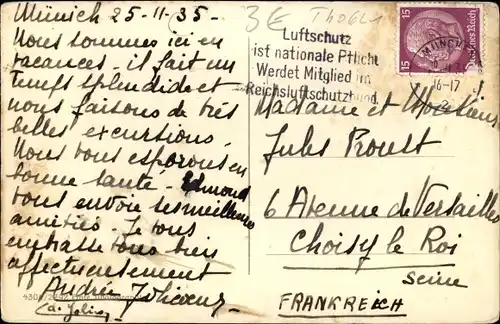 Münich 25-11-35-
Nous sommes ici en
vacances - il fait un
temps splendide et
nous faisons de très
belles excursions.
Nous vous espérons en
bonne santé - Edmond
vous envoie ses meilleures
amitiés. Je vous
embrasse tous bien
affectueusement
Andrée
3€
Luftschutz
ist nationale Pflicht
Werdet Mitglied im
Reichsluftschutzbund
15
15
Deutsches Reich
MÜNCHEN
16-17
Madame et Monsieur
Jules Proust
6 Avenue de Versailles
Choisy le Roi
Seine
FRANKREICH